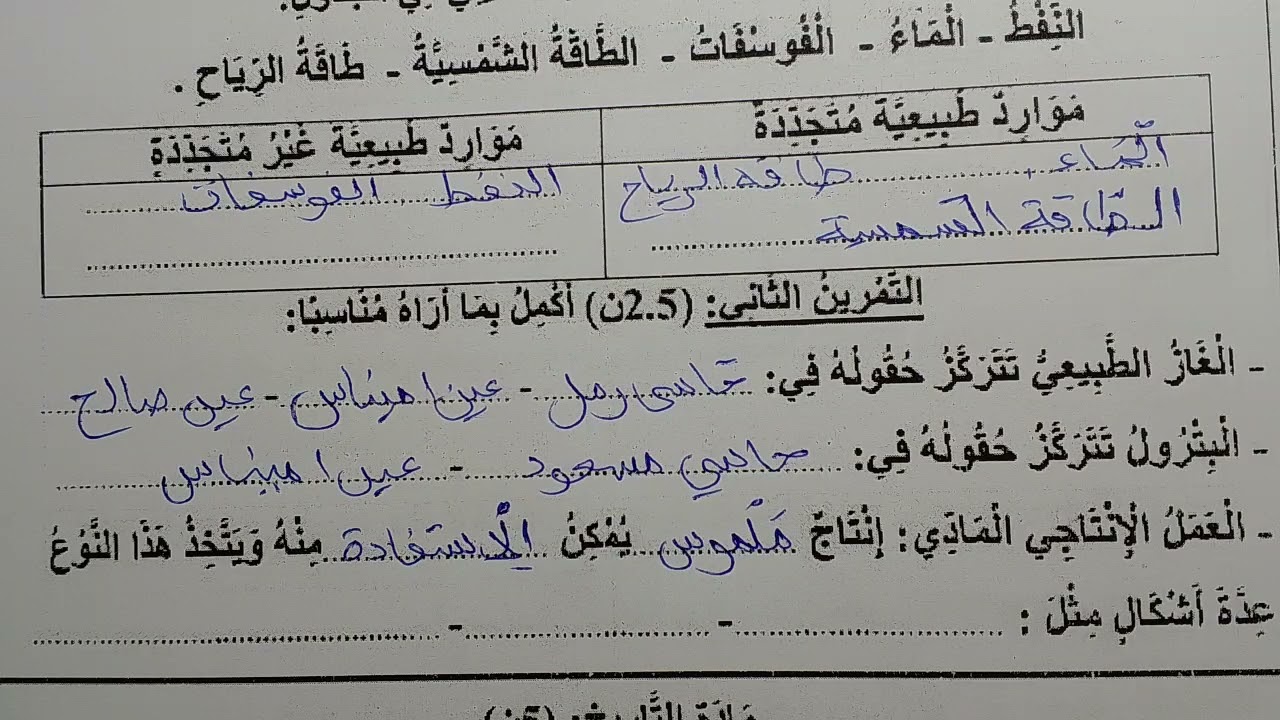 النِّفْطُ - الْمَاءُ - الْفُوسْفَاتُ - الطَّاقَةُ الشَّمْسِيَّةُ - طَاقَةُ الرِّيَاحِ .
مَوَارِدٌ طَبِيعِيَّةَ مُتَجَدِّدَةٌ
الْمَاء ............ طاقة الرياح
الطّاقة الشمسية ............
مَوَارِدٌ طَبِيعِيَّةَ غَيْرُ مُتَجَدِّدَةٍ
النفط ...... الفوسفات ............
............
التَّمْرِينُ الثَّانِي: (2.5ن) أُكْمِلُ بِمَا أَرَاهُ مُنَاسِبًا:
- الْغَازُ الطَّبِيعِيُّ تَتَرَكَّزُ حُقُولُهُ فِي: حاسي رمل - عين اميناس - عين صالح
- الْبِتْرُولُ تَتَرَكَّزُ حُقُولُهُ فِي: حاسي مسعود - عين اميناس ............
- الْعَمَلُ الْإِنْتَاجِي الْمَادِّي: إِنْتَاجٌ مَلْموس يُمْكِنُ الْإستفادة مِنْهُ وَيَتَّخِذُ هَذَا النَّوْعُ
عِدَّةَ أَشْكَالٍ مِثْلَ : ............ - ............ - ............
مَادَّةُ التَّارِيخِ: (5ن)